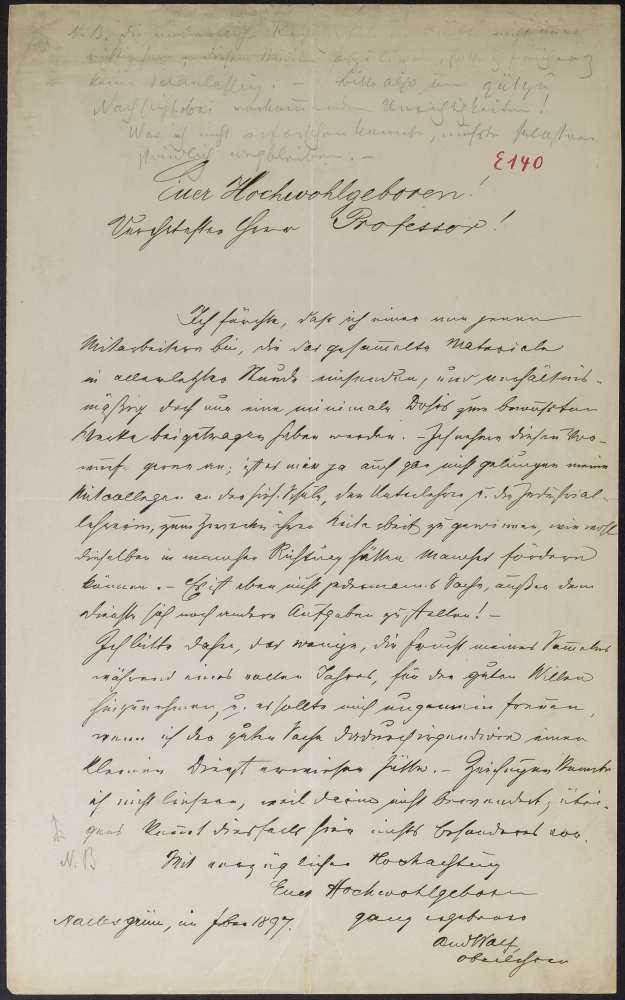 N. B. die
keine Veranlassung. – bitte also um gütige
Nachsicht bei vorkommenden Unrichtigkeiten!
Was ich nicht erforschen konnte, mußte selbstver-
ständlich wegbleiben. –
E140
Euer Hochwohlgeboren!
Verehrtester Herr Professor!
Ich fürchte, daß ich einer von jenen
Mitarbeitern bin, die das gesammelte Materiale
in allerletzter Stunde einsenden, und verhältnis-
mäßig doch nur eine minimale Dosis zum bewußten
Werke beigetragen haben werden. – Ich nehme diesen Vor-
wurf gerne an; ist es mir ja auch gar nicht gelungen meine
Mitcollegen an der hies. Schule, den Unterlehrer u. die Industrial-
lehrerin, zum Zwecke ihrer Mitarbeit zu gewinnen, wie wohl
dieselben in mancher Richtung hätten Manches fördern
können. – Es ist eben nicht jedermanns Sache, außer dem
Dienste sich noch andere Aufgaben zu stellen! –
Ich bitte daher, das wenige, die Frucht meines Sammelns
während eines vollen Jahres, für den guten Willen
hinzunehmen, u. es sollte mich ungemein freuen,
wenn ich der guten Sache dadurch irgendwie einen
kleinen Dienst erwiesen hätte. – Zeichnungen konnte
ich nicht liefern, weil darin nicht bewandert; übri-
gens kommt diesfalls hier nichts besonderes vor.
N. B
Mit vorzüglicher Hochachtung
Euer Hochwohlgeboren
ganz ergebener
im 1897.
And Wolf,
Oberlehrer